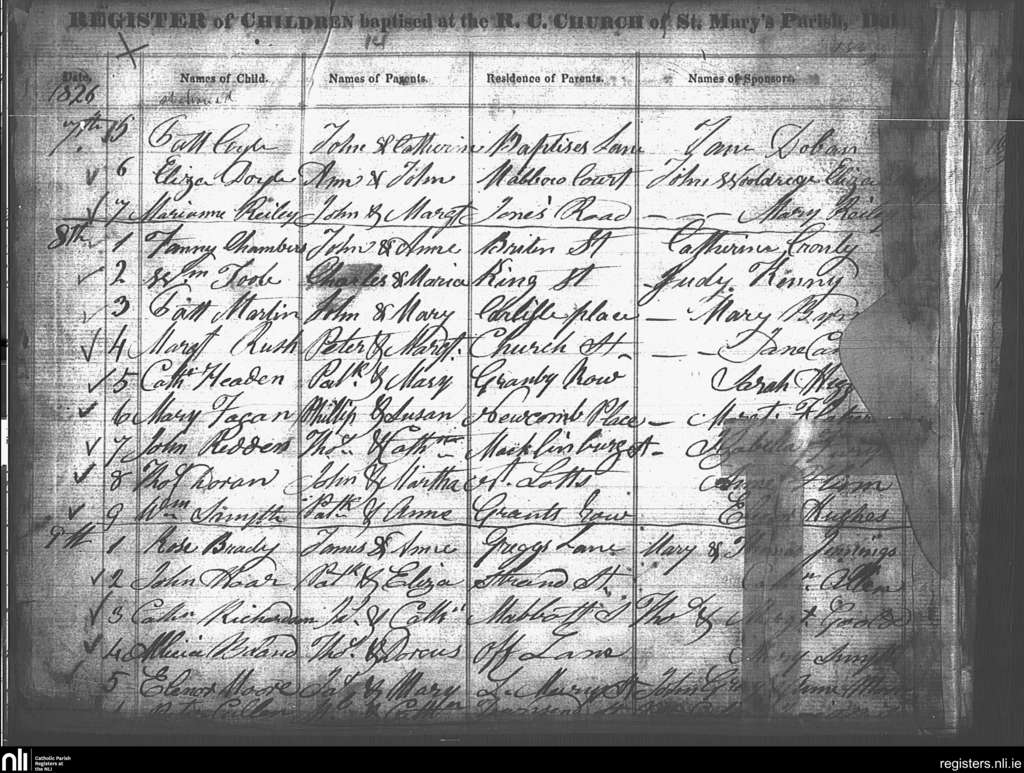 REGISTER of CHILDREN baptised at the R. C. CHURCH of St. Mary's Parish,
14
Date, Names of Child. Names of Parents. Residence of Parents. Names of Sponsors.
1826
7th 5 Patt Coyle John & Catherine Baptises Lane Jane Doban
6 Eliza Doyle Ann & John Mabbow Court John Wooldrige Eliza
7 Marianne Reiley John & Margt Jone's Road - - - Mary Reily
8th 1 Fanny Chambers John & Anne Briten St Catherine Cronly
2 Wm Toole Charles & Maria King St Judy Kenny
3 Patt Martin John & Mary Carlisle place - Mary Byrn
4 Margt Rush Peter & Margt. Church St - - Jane
5 Cathn Headen Patk & Mary Granby Row Sarah
6 Mary Fagan Phillip & Susan Newcomb Place -
7 John Redden Thos & Cathne Macklinburg St - Isabella
8 Thos Doran John & Martha N. Lotts Anne
9 Wm Smyth Patk & Anne Grants Row Hughes
9th 1 Rose Brady James & Anne Greggs Lane Mary & Thomas Jennings
2 John Hoar Patk & Eliza Strand St. Cathn.
3 Cathn Richardson Jn. & Cathn Mabbott St Thos & Margt Goolde
4 Alicia Boland Thos. & Dorcus Off Lane Mary Smyth
5 Elenor Moore Pat & Mary L. Mary St John
Peter Cullen & Cathn
nli Catholic Parish
Registers at
the NLI
registers.nli.ie